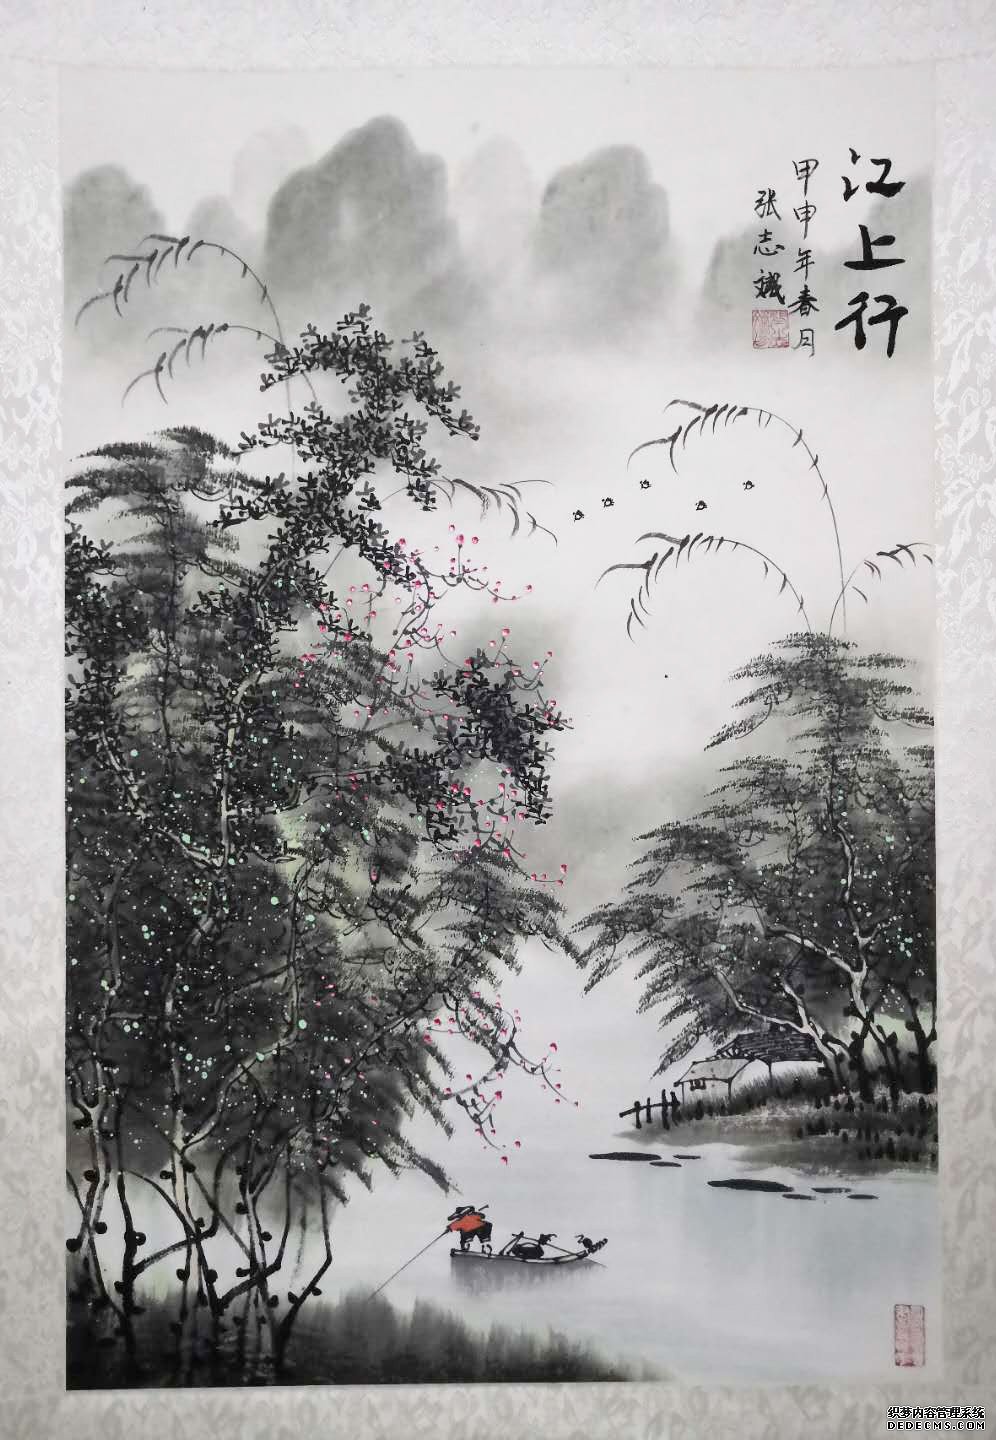 江上行
甲申年春月
张志
织梦内容管理系统
DEDECMS.COM